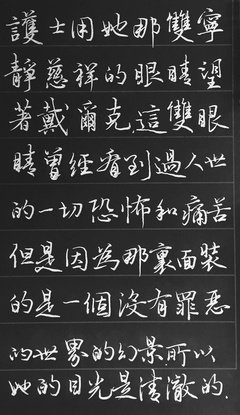 護士用她那雙寧
靜慈祥的眼睛望
著戴爾克,這雙眼
睛曾經看到過人世
的一切恐怖和痛苦
但是因為那裏面裝
的是一個沒有罪惡
的世界的幻景,所以
她的目光是清澈的.